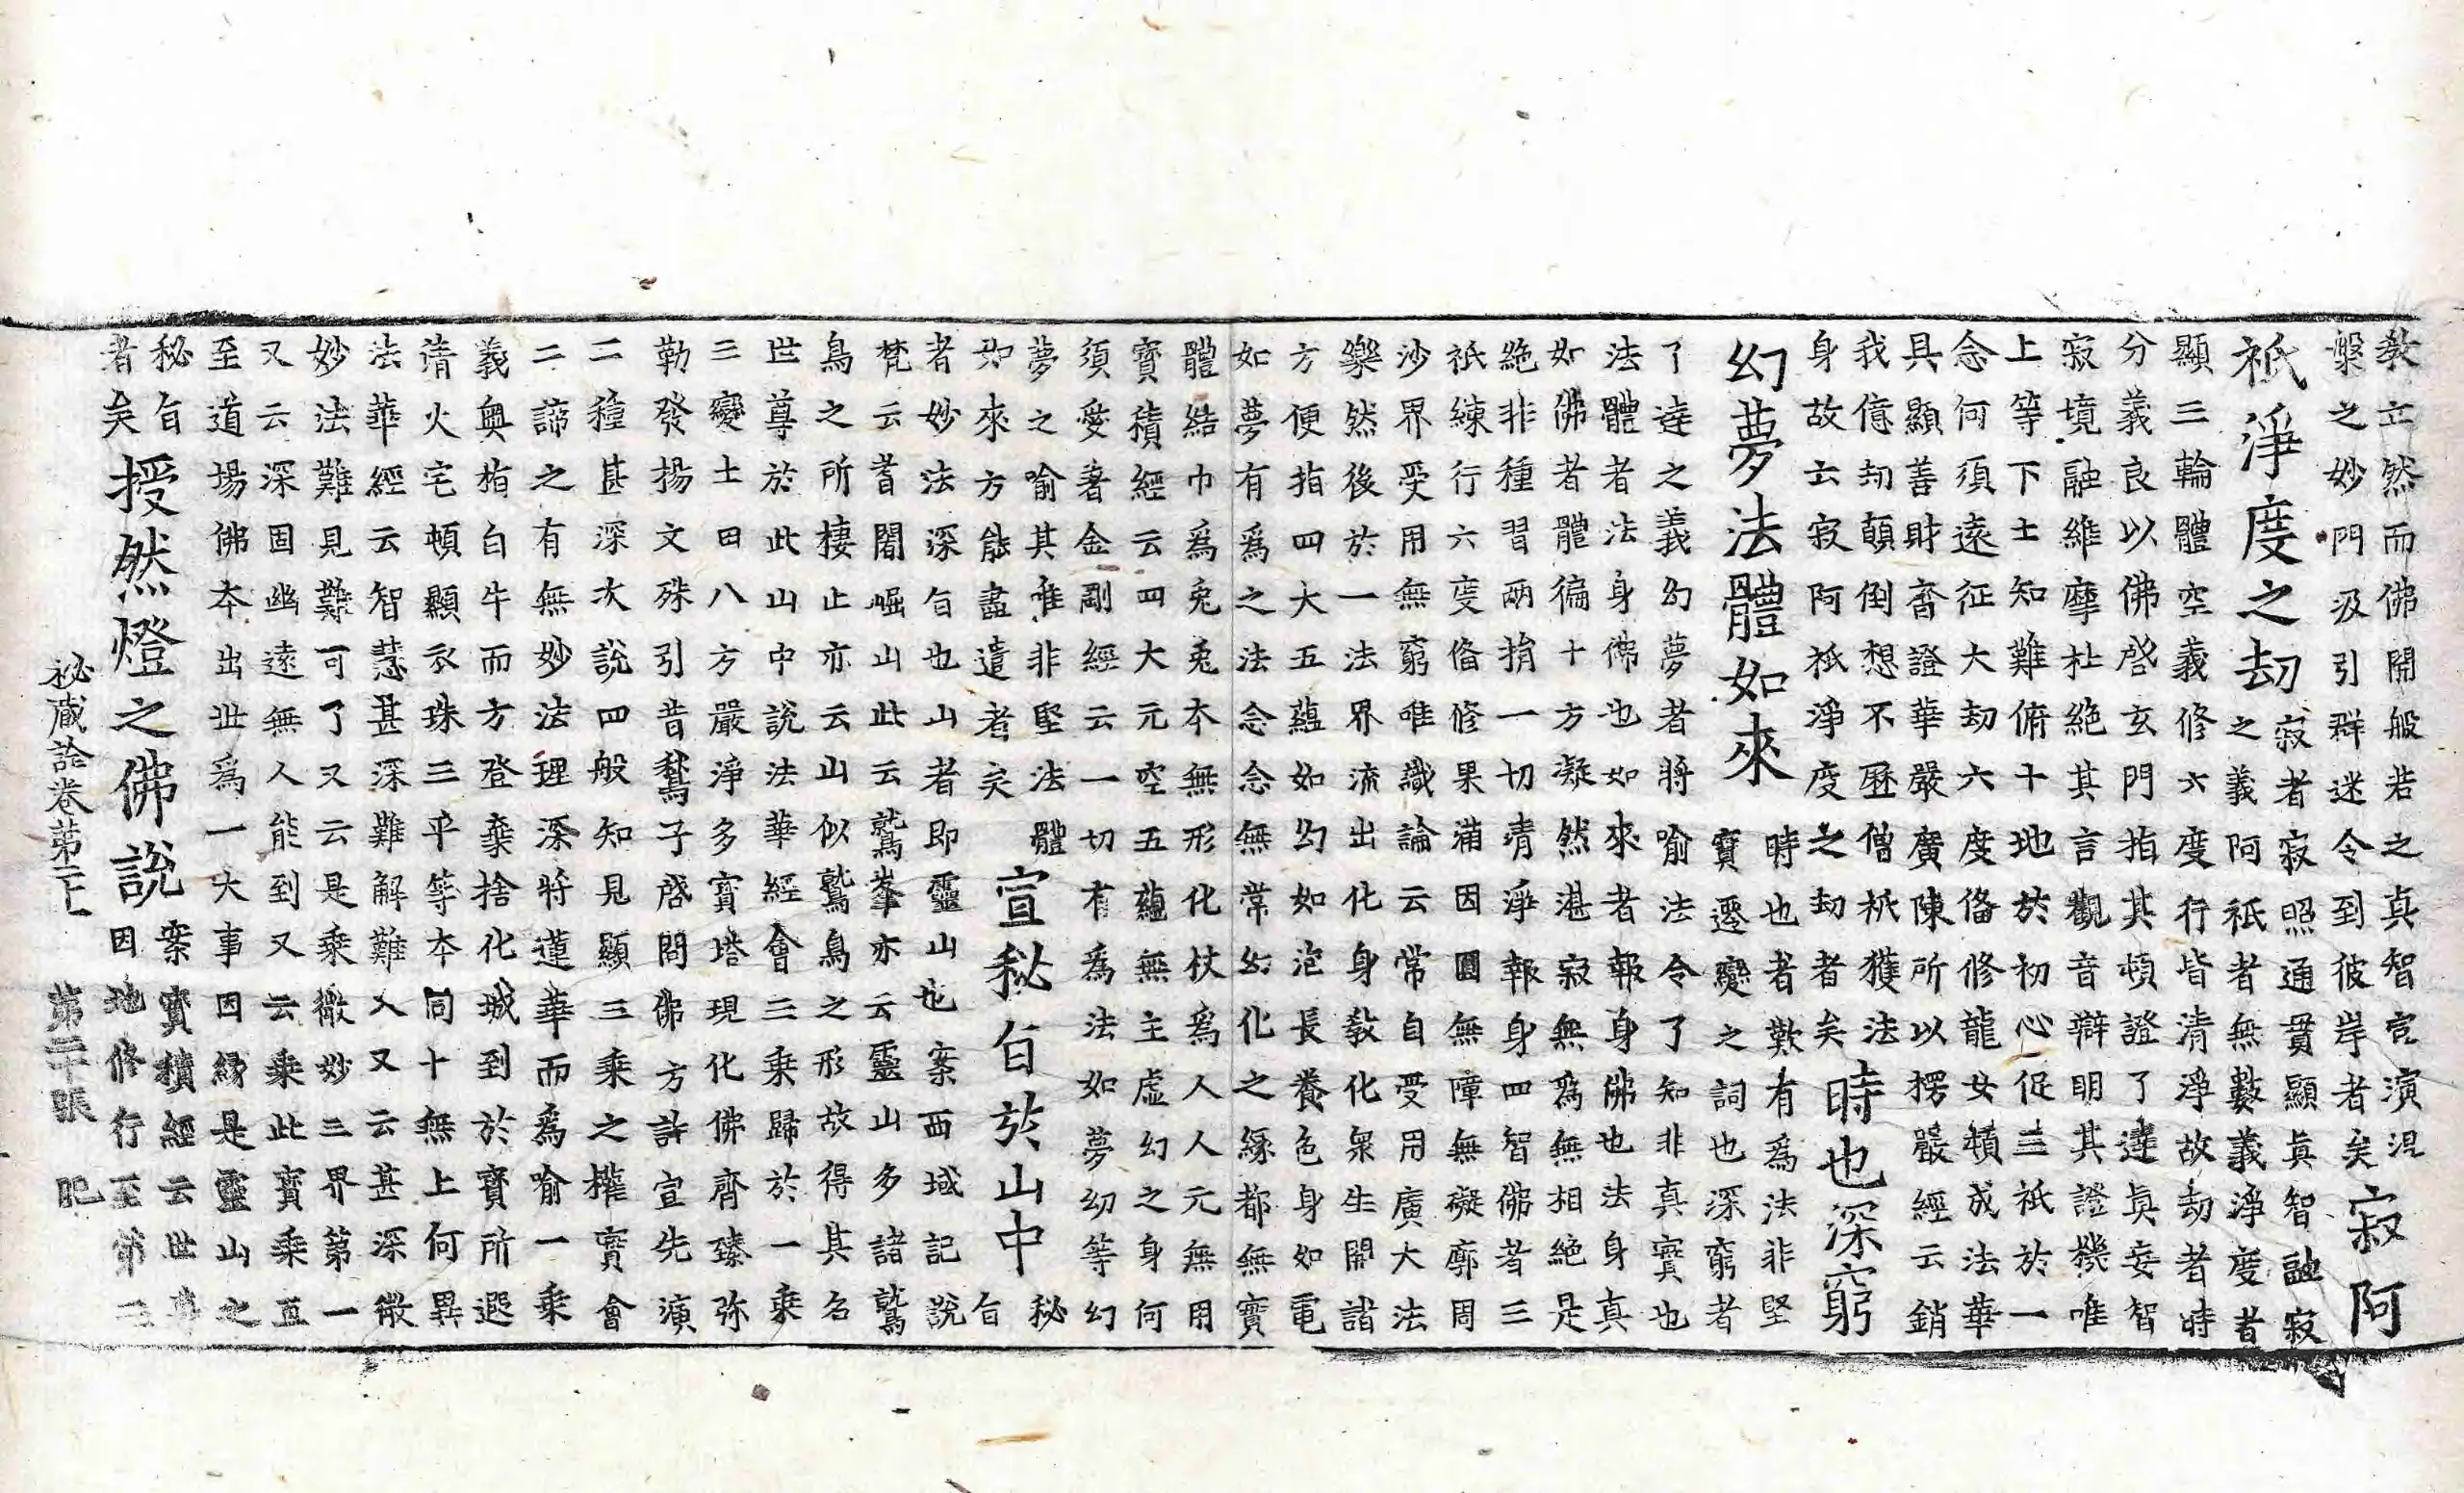 教立然而佛開般若之真智宮演涅
槃之妙門汲引群迷令到彼岸者矣
寂阿
祇淨度之劫
寂者寂照通貫顯真智融寂
之義阿祇者無數義淨度者
顯三輪體空義修六度行皆清淨故劫者時
分義良以佛啓玄門指其頓證了達真妄智
寂境融維摩杜絶其言觀音辯明其證機唯
上等下士知難俯十地於初心促三祇於一
念何須遠征大劫六度俻修龍女頓成法華
具顯善財畣證華嚴廣陳所以楞嚴經云銷
我億劫顛倒想不歷僧祇獲法
身故云寂阿祇淨度之劫者矣
時也深窮
幻夢法體如來
時也者歎有爲法非堅
寶遷變之詞也深窮者
了達之義幻夢者將喻法令了知非真實也
法體者法身佛也如來者報身佛也法身真
如佛者體徧十方凝然湛寂無爲無相絶是
絶非種習兩捐一切清淨報身四智佛者三
祇練行六度俻修果滿因圓無障無礙廓周
沙界受用無窮唯識論云常自受用廣大法
樂然後於一法界流出化身教化衆生開諸
方便指四大五蘊如幻如泡長養色身如電
如夢有爲之法念念無常幻化之緣都無實
體結巾爲兎兎本無形化杖爲人人元無用
寶積經云四大元空五蘊無主虛幻之身何
須愛著金剛經云一切有爲法如夢幻等幻
夢之喻其唯非堅法體
如來方能盡遣者矣
宣秘㫖於山中
秘
㫖
者妙法深㫖也山者即靈山也案西域記說
梵云耆闍崛山此云鷲峯亦云靈山多諸鷲
鳥之所棲止亦云山似鷲鳥之形故得其名
世尊於此山中說法華經會二乗歸於一乗
三變土田八方嚴淨多寶塔現化佛齊臻弥
勒發揚文殊引昔鶖子啓問佛方許宣先演
二種甚深次說四般知見顯三乗之權實會
二諦之有無妙法理深將蓮華而爲喻一乗
義奥指白牛而方登棄捨化城到於寶所遐
清火宅頓顯衣珠三平等本同十無上何異
法華經云智慧甚深難解難入又云甚深微
妙法難見難可了又云是乗微妙三界第一
又云深固幽遠無人能到又云乗此寶乗直
至道場佛本出世爲一大事因緣是靈山之
秘㫖
者矣
授然燈之佛說
案寶積經云世尊
因地修行至第二
秘蔵詮卷第二十 第二十張 肥